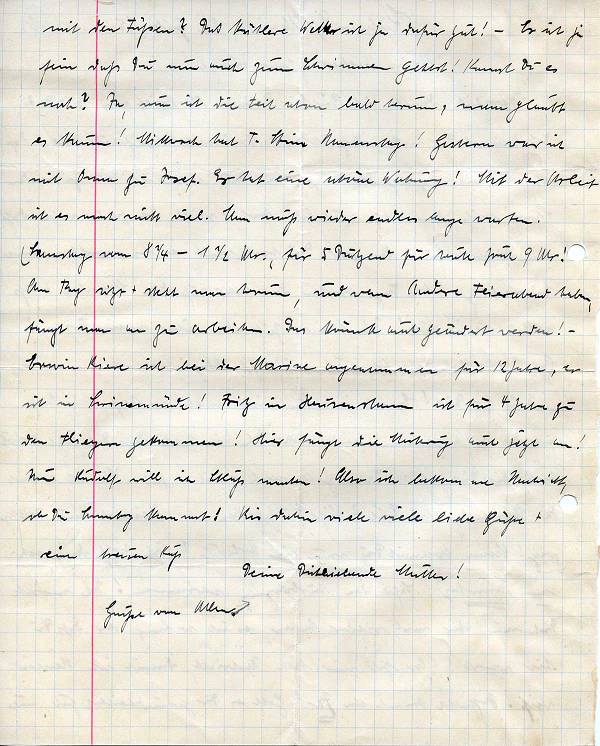 mit den Füßen? Das kühlere Wetter ist ja dafür gut! – Es ist ja
fein daß Du nun auch zum Schwimmen gehst! Kannst Du es
noch? Ja, nun ist die Zeit schon bald herum, man glaubt
es kaum! Mittwoch hat T. Namenstag! Gestern war ich
mit Oma zu Josef. Er hat eine schöne Wohnung! Mit der Arbeit
ist es noch nicht viel. Man muß wieder endlos lange warten.
(Samstag von 8 3/4 – 1 1/2 Uhr, für 5 Dutzend für heute früh 9 Uhr!
Am Tag sitzt + steht man herum, und wenn Andere Feierabend haben,
fängt man an zu arbeiten. Das könnte auch geändert werden! –
Erwin ist bei der Marine angenommen für 12 Jahre, er
ist in Swinemünde! Fritz in Heusenstamm ist für 4 Jahre zu
den Fliegern gekommen! Hier fängt die jetzt an!
Nun Rudolf will ich Schluß machen! Also ich bekomme Nachricht,
ob Du Samstag kommst! Bis dahin viele viele liebe Grüße +
ein Kuß
Deine Dichliebende Mutter!
Grüße von